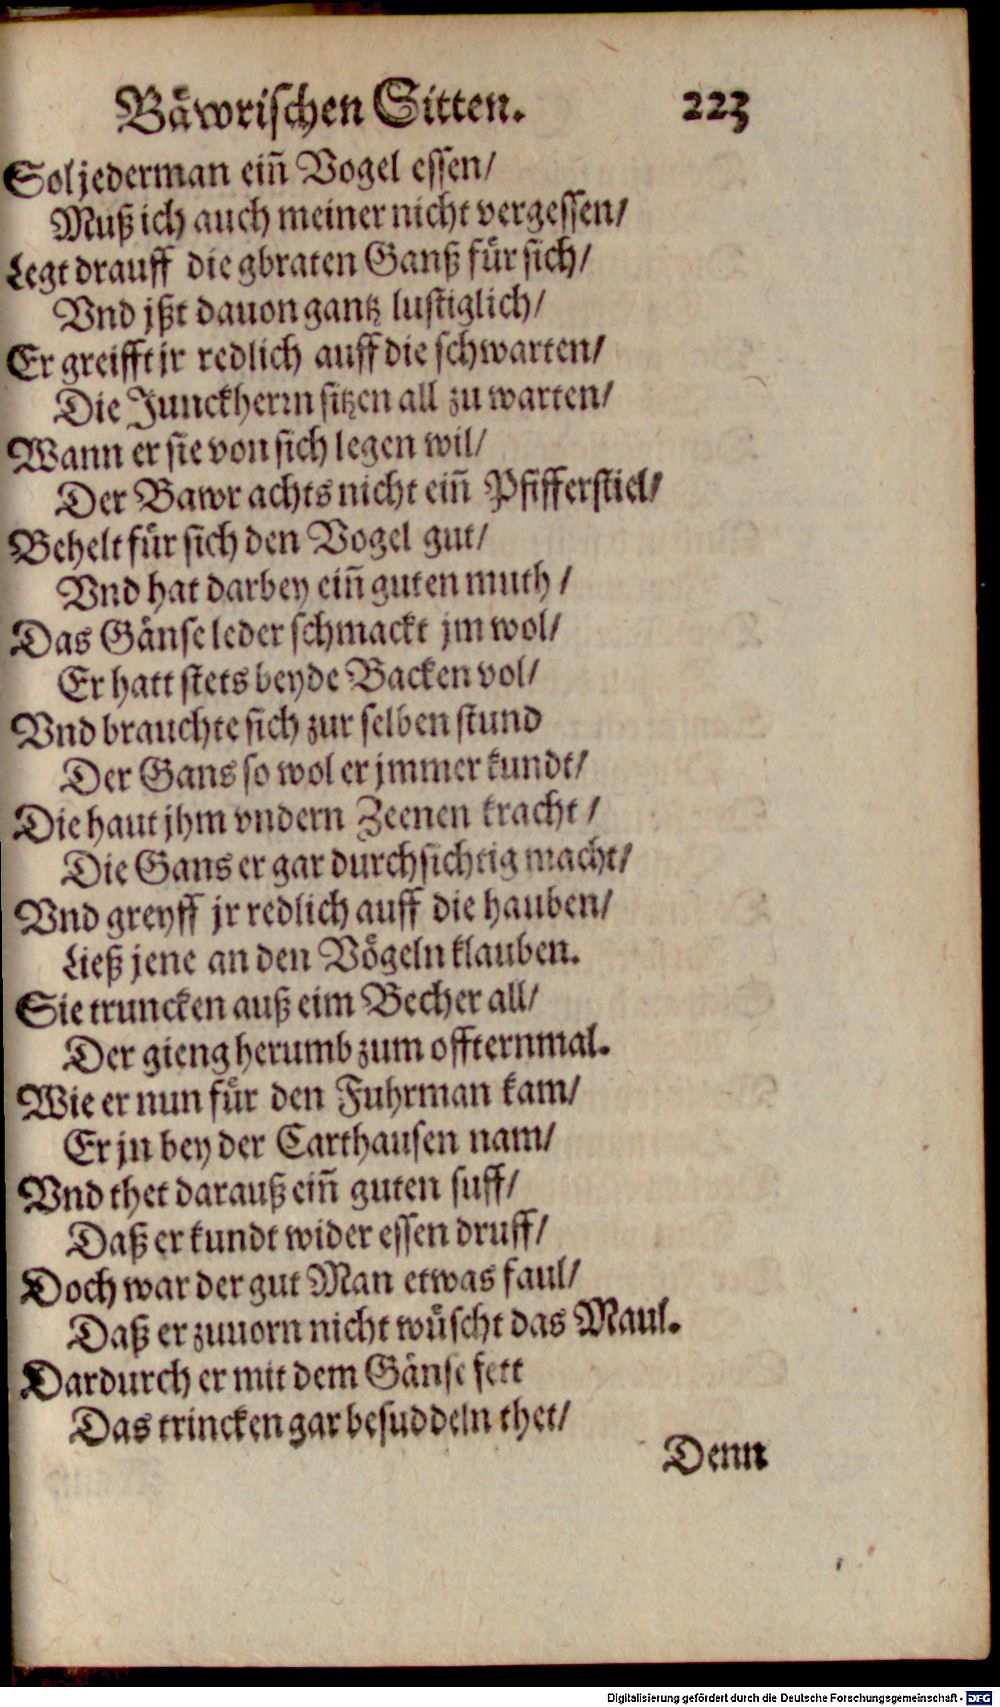 Bäwrischen Sitten. 223
Sol jederman eiñ Vogel essen/
Muß ich auch meiner nicht vergessen/
Legt drauff die gbraten Ganß für sich/
Vnd jßt dauon gantz lustiglich/
Er greifft jr redlich auff die schwarten/
Die Junckherrn sitzen all zu warten/
Wann er sie von sich legen wil/
Der Bawr achts nicht eiñ Pfifferstiel/
Behelt für sich den Vogel gut/
Vnd hat darbey eiñ guten muth /
Das Gänse leder schmackt jm wol/
Er hatt stets beyde Backen vol/
Vnd brauchte sich zur selben stund
Der Gans so wol er jmmer kundt/
Die haut jhm vndern Zeenen kracht /
Die Gans er gar durchsichtig macht/
Vnd greyff jr redlich auff die hauben/
Ließ jene an den Vögeln klauben.
Sie truncken auß eim Becher all/
Der gieng herumb zum offternmal.
Wie er nun für den Fuhrman kam/
Er jn bey der Carthausen nam/
Vnd thet darauß eiñ guten suff/
Daß er kundt wider essen druff/
Doch war der gut Man etwas faul/
Daß er zuuorn nicht wüscht das Maul.
Dardurch er mit dem Gänse fett
Das trincken gar besuddeln thet/
Denn
Digitalisierung gefördert durch die Deutsche Forschungsgemeinschaft - DFG